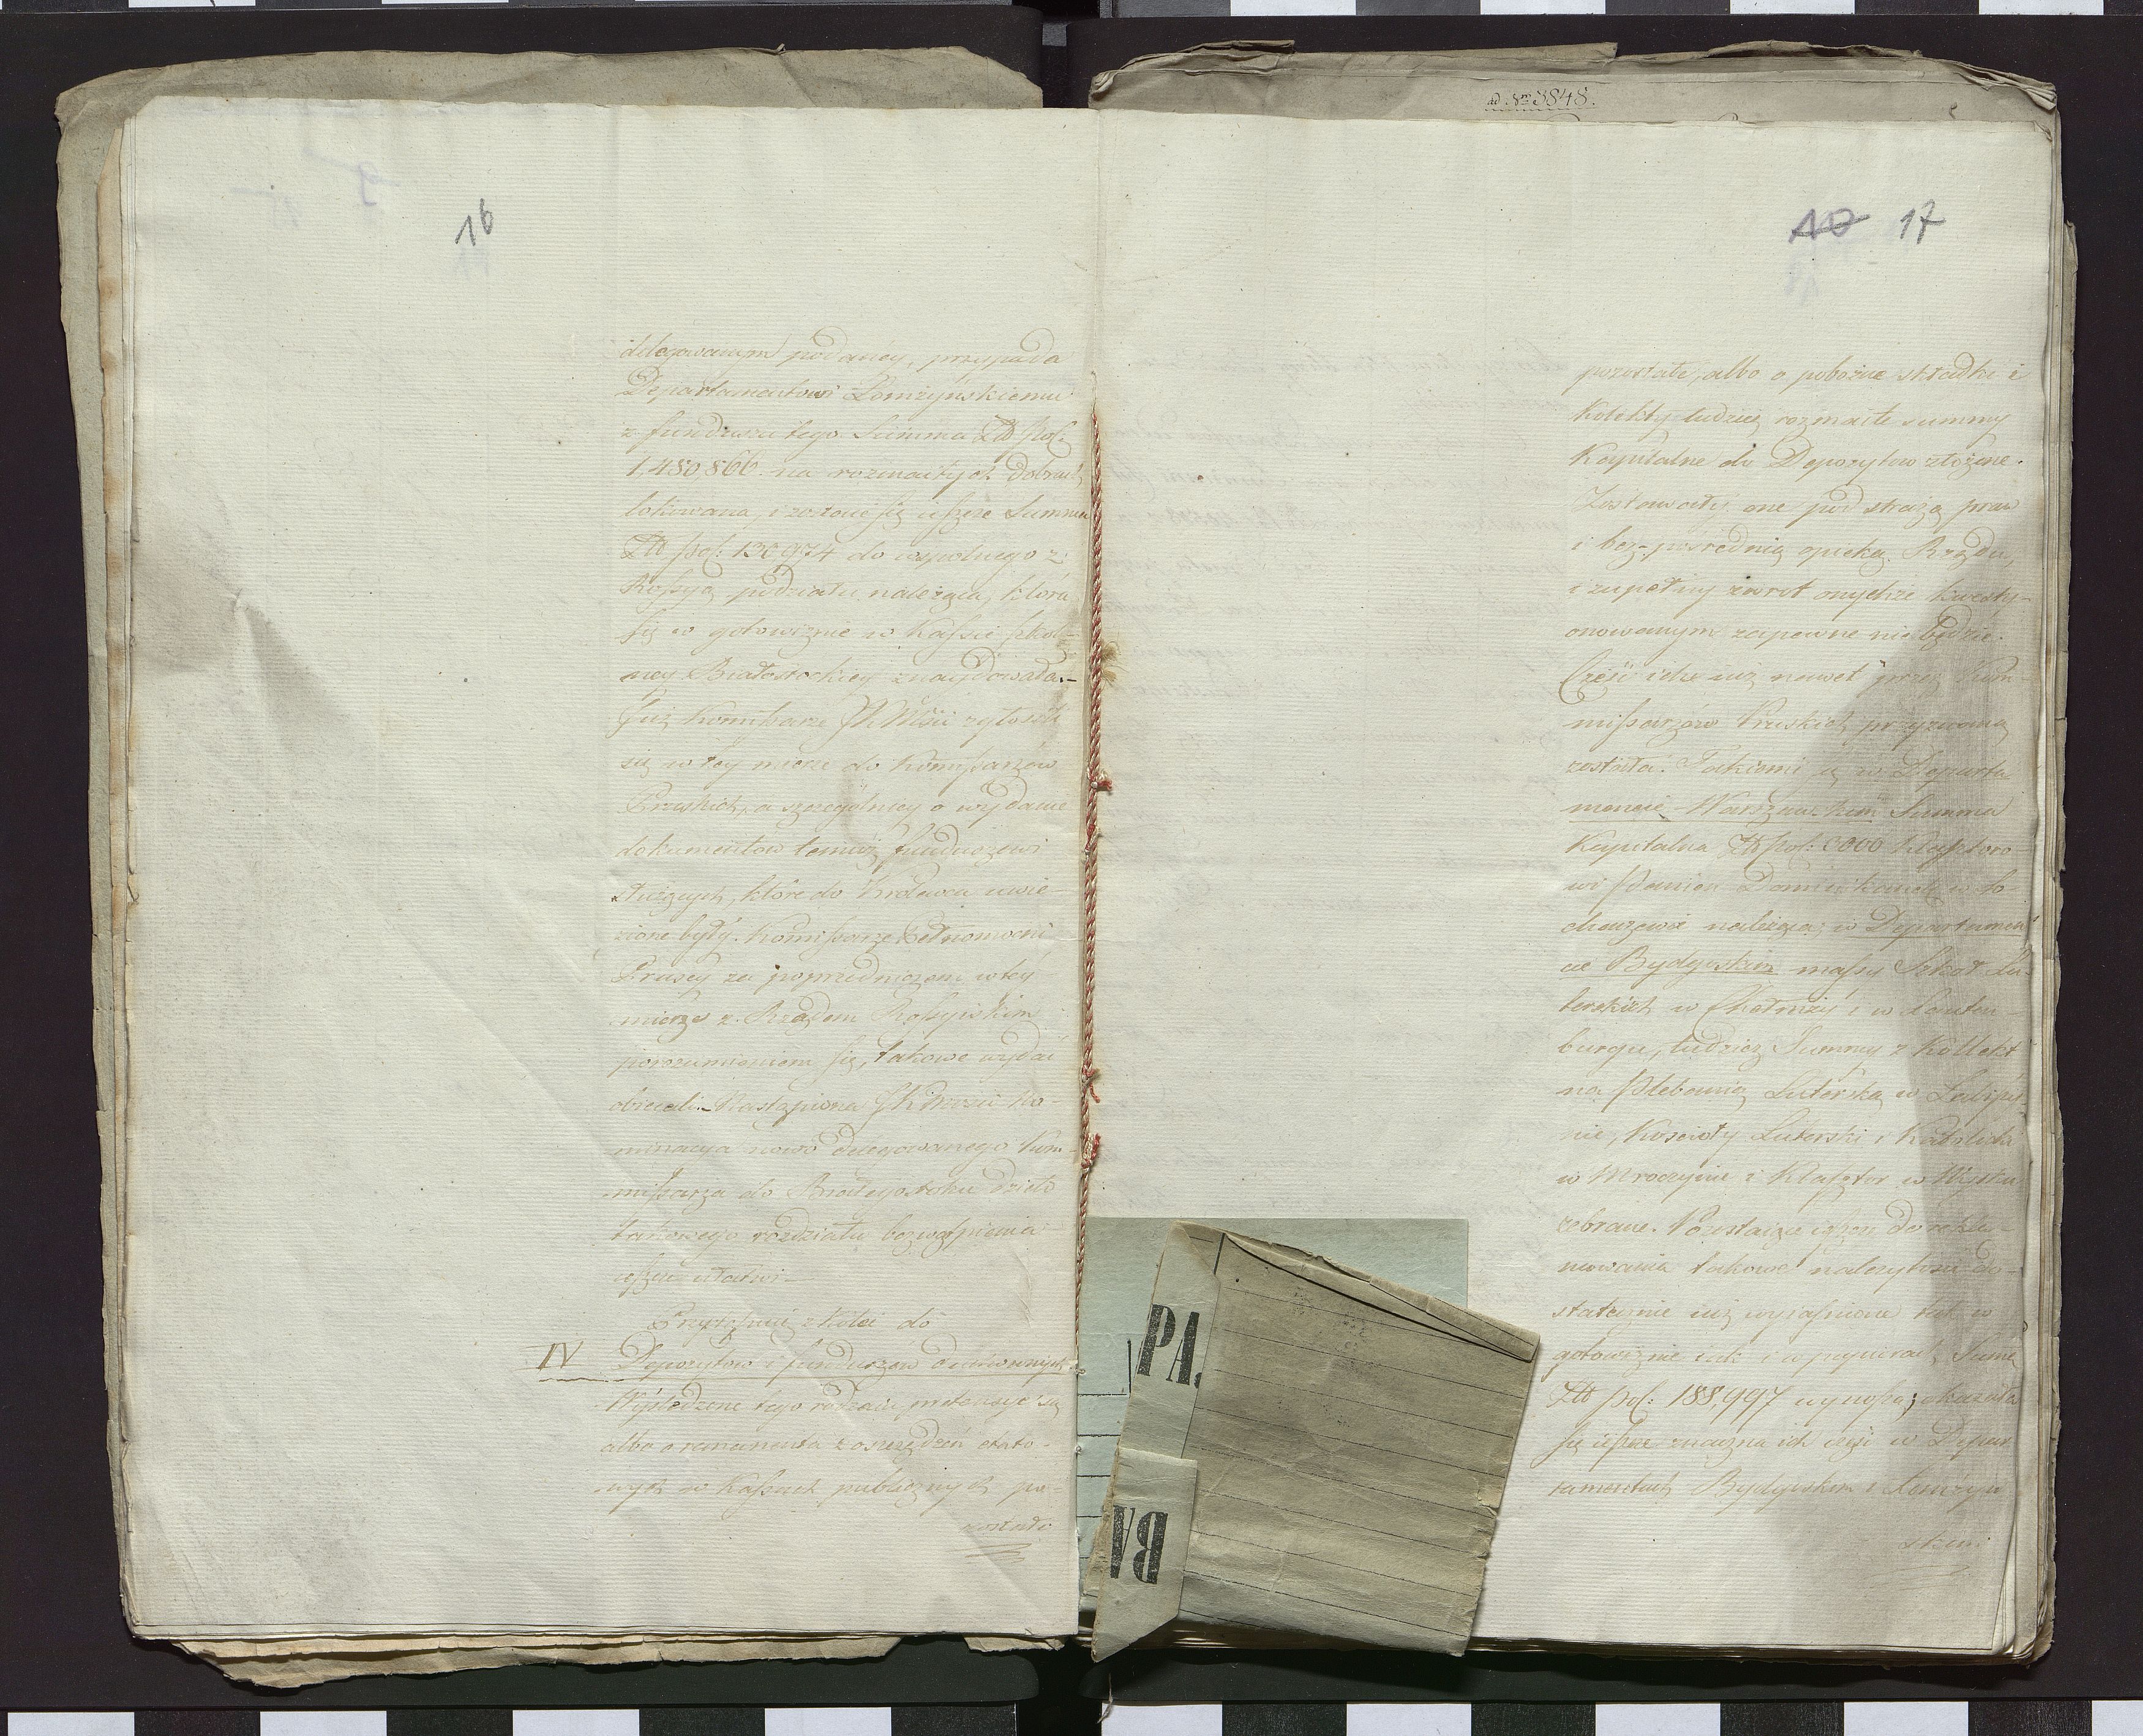 16
delegowanym podaney, przypada
Departamentowi Łomżyńskiemu
z funduszu tego Summa Złł pol:
1,480,866 na rozmaitych dobrach
lokowana, i zostaie się ieszcze Summa
Złł pol: 130,974 do wspolnego z
Rossyą podziału należąca, która
się w gotowiznie w Kassie szkol-
ney Białostockiey znaydowała.-
Już Kommissarze JKMści zgłosili
się w tey mierze do Kommissarzów
Pruskich, a szczególniey o wydanie
dokumentów temuż funduszowi
służących, które do Krolewca uwie-
zione były. Kommissarze Pełnomocni
Pruscy za poprzedniczem w tey
mierze z Rządem Rossyiskim
porozumieniem się, takowe wydać
obiecali. Nastąpiona JKMości No-
minacya nowo delegowanego Kom-
missarza do Białegostoku dzieło
takowego rozdziału bezwątpienia
ieszcze ułatwi.-
Przystąpmy z kolei do
IV Depozytów i funduszów duchownych.
Wyśledzone tego rodzaiu pretensye są
albo o remanenta z oszczędzeń etato-
wych w Kassach publicznych po-
zostałe
ad Nrm 3848.
10 17
pozostałe, albo o pobożne składki i
Kolekty tudzież rozmaite summy
Kapitalne do Depozytów złożone.
Zostawały one pod strażą praw
i bez-pośrednią opieką Rządu,
i zupełny zwrot onychże kwesty-
onowanym zapewne nie będzie.
Część ich iuż nawet przez Kom-
missarzów Pruskich przyznaną
została. Takiemi są w Departa-
mencie Warszawskim Summa
Kapitalna Złł pol: 6000 Klasztoro-
wi Panien Dominikanek w So-
chaczewie należąca; w Departamen-
cie Bydgoskim massy Szkół Lu-
terskich w Chełmży i w Lauten-
burgu, tudzież Summy z Kollekt
na Plebanią Luterską w
nie, Kościoły Luterski i Katolicki
w Mroczynie i Klasztor w
zebrane. Pozostaiące ieszcze do rekla-
mowania takowe należytości do-
statecznie iuż wyiaśnione tak w
gotowiznie iak i w papierach Sumę
Złł pol: 188,997 wynoszą; okazała
się ieszcze znaczna ich część w Depar-
tamentach Bydgoskim i Łomżyń-
skim
PA.
BA